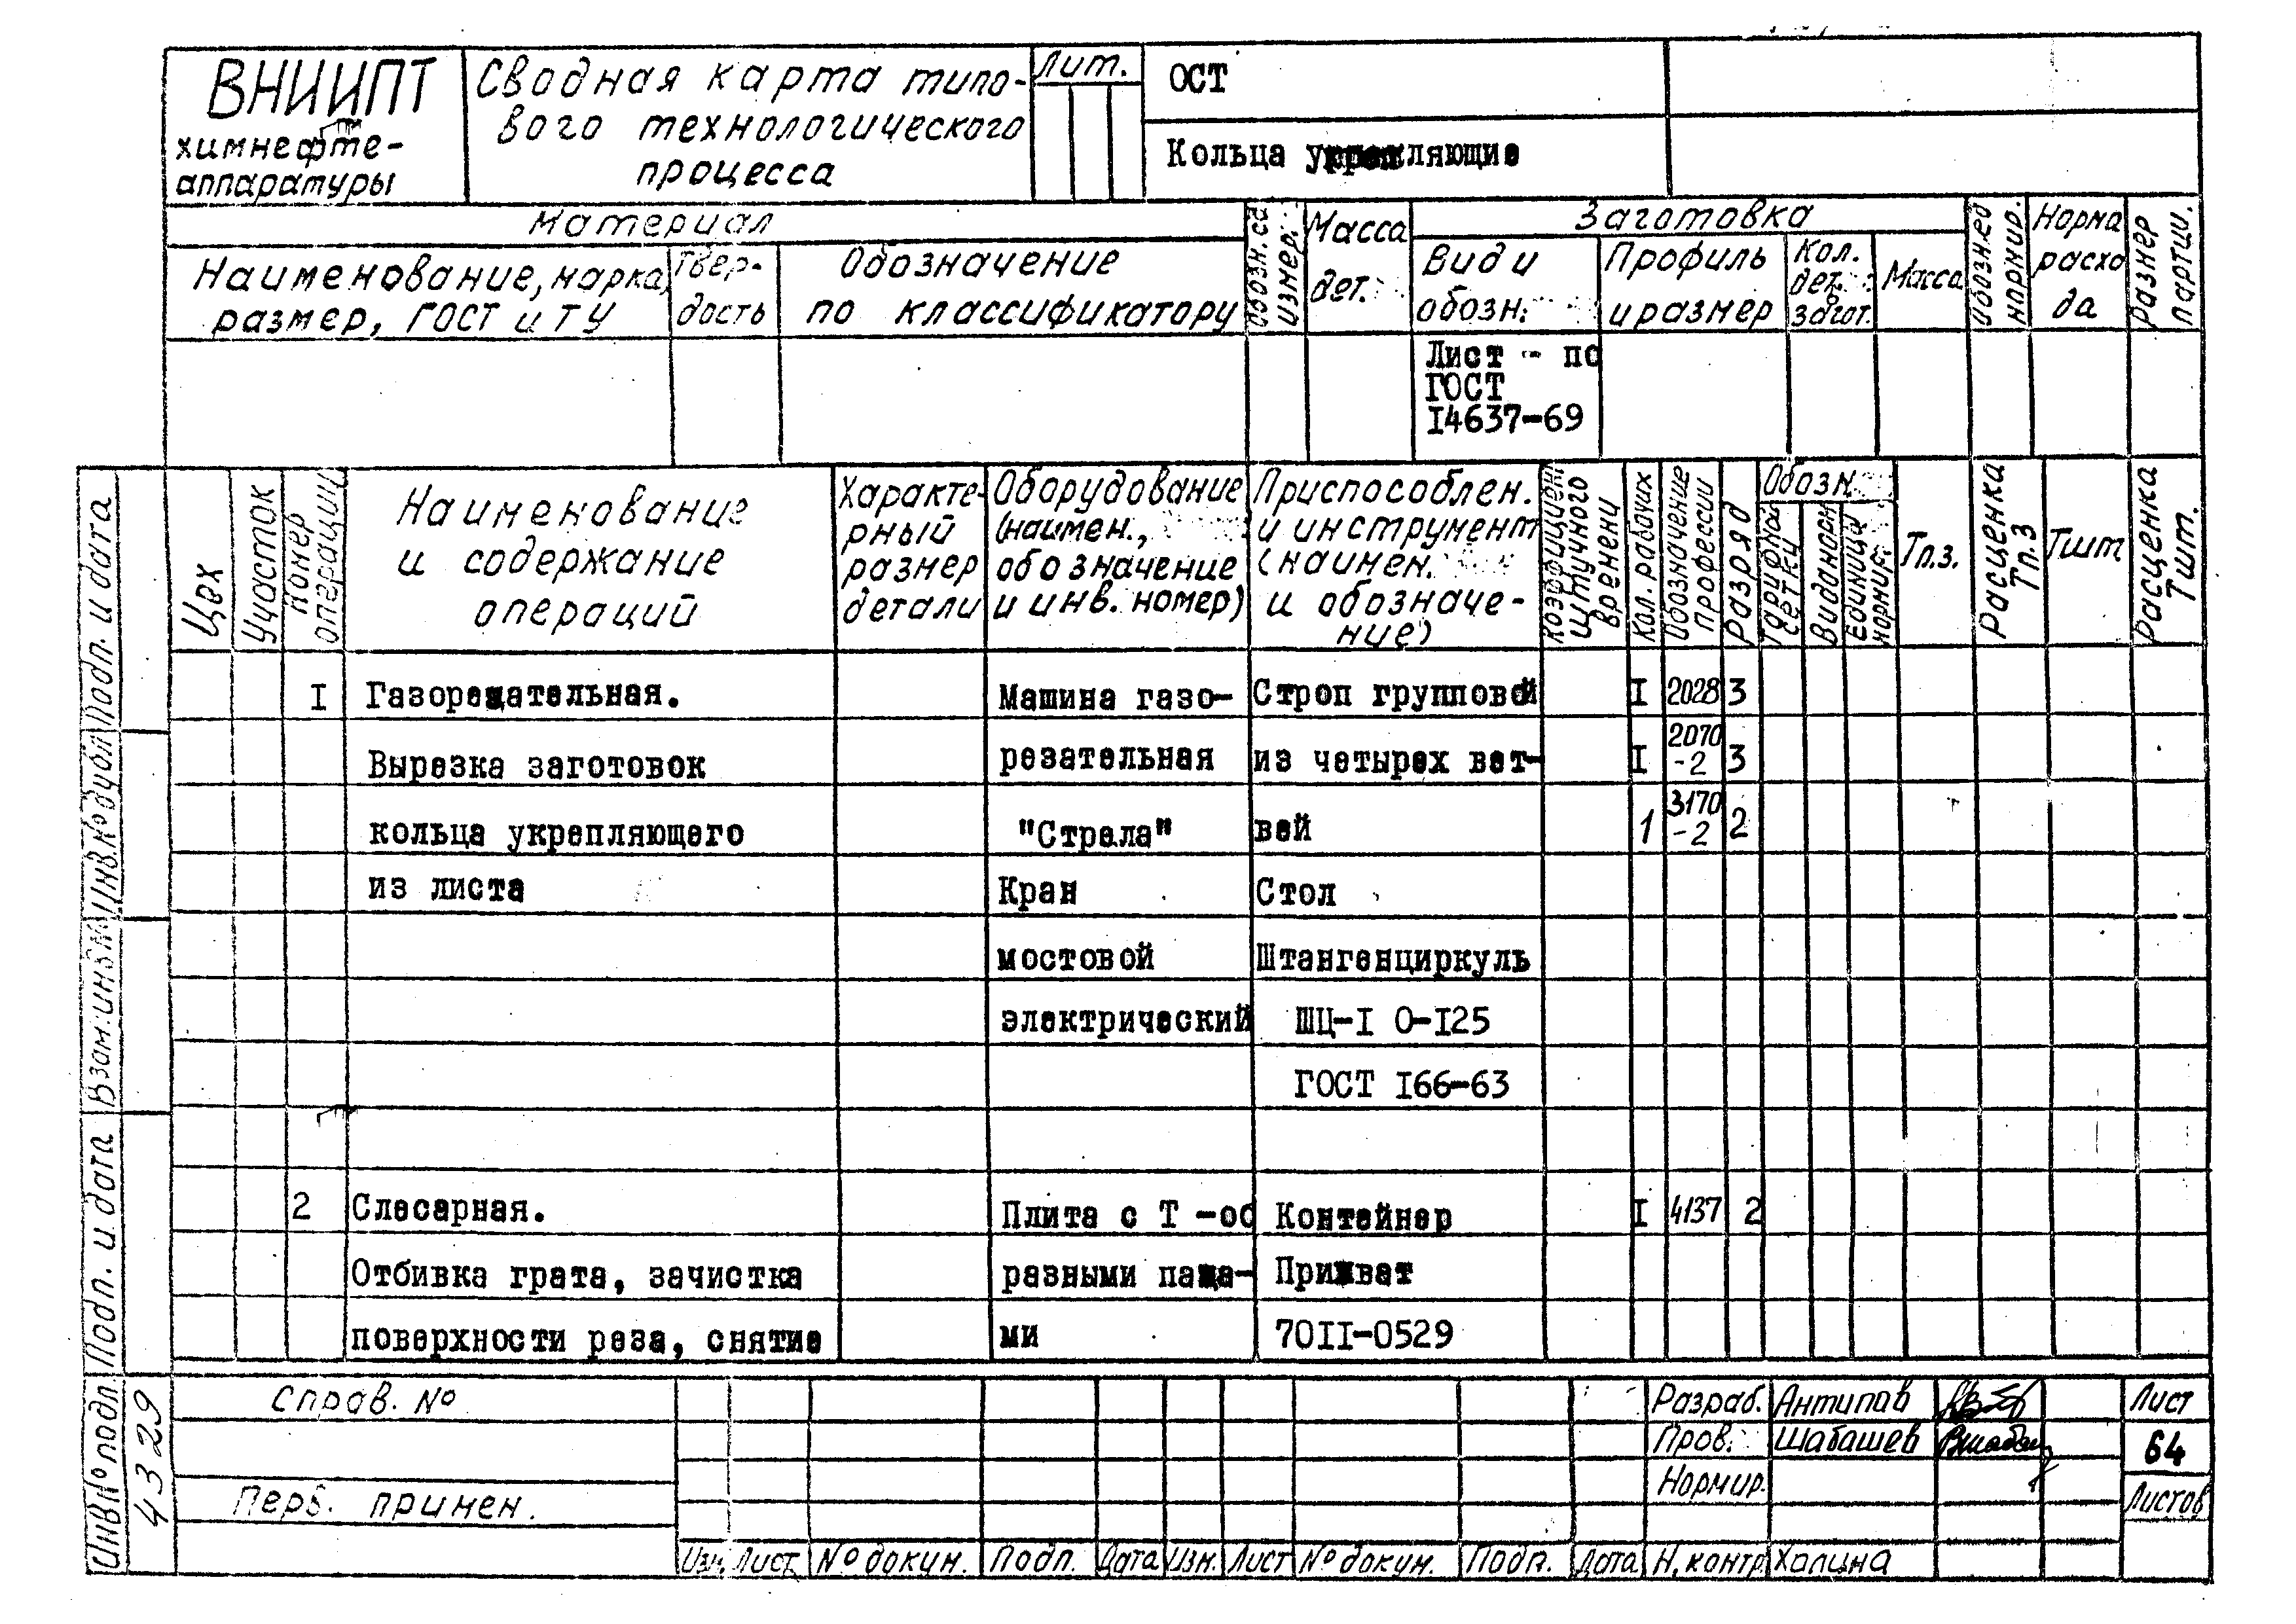 ВНИИПТ
химнефте-
аппаратуры
Сводная карта типо-
вого технологического
процесса
Лит.
ОСТ
Кольца укрепляющие
Материал
Наименование, марка,
размер, ГОСТ и ТУ
Твер-
дость
Обозначение
по классификатору
Обозн. ед
измер.
Масса
дет.
Заготовка
Вид и
обозн.
Профиль
и размер
Кол.
дет.
загот.
Масса
Обозн. ед
нормир.
Норма
расхо
да
Размер
партии.
Лист - по
ГОСТ
14637-69
Цех
Участок
Номер
операции
Наименование
и содержание
операций
Характе-
рный
размер
детали
Оборудование
(наимен.,
обозначение
и инв. номер)
Приспособлен.
и инструмент
(наимен.
и обозначе-
ние)
Коэффициент
штучного
времени
Кол. рабочих
Обозначение
профессии
Разряд
Обозн.
Тарифной
сетки
Вида норм
Единица
нормир.
Тп.з.
Расценка
Тп.з
Тшт.
Расценка
Тшт.
I Газорезательная. Машина газо- Строп групповой I 2028 3
Вырезка заготовок резательная из четырех вет- I 2070-2 3
кольца укрепляющего "Стрела" вей 1 3170-2 2
из листа Кран Стол
мостовой Штангенциркуль
электрический ШЦ-I 0-I25
ГОСТ I66-63
2 Слесарная. Плита с Т -об Контейнер I 4137 2
Отбивка грата, зачистка разными паза- Прихват
поверхности реза, снятие ми 70II-0529
Подп. и дата
Инв.№ дубл
Взам.инв.№
Подп. и дата
Инв № подл.
4329
Справ. №
Перв. примен.
Изм. Лист № докум. Подп. Дата Изм. Лист № докум. Подп. Дата
Разраб. Антипов
Пров. Шабашев
Нормир.
Н.контр. Халина
Лист
64
Листов